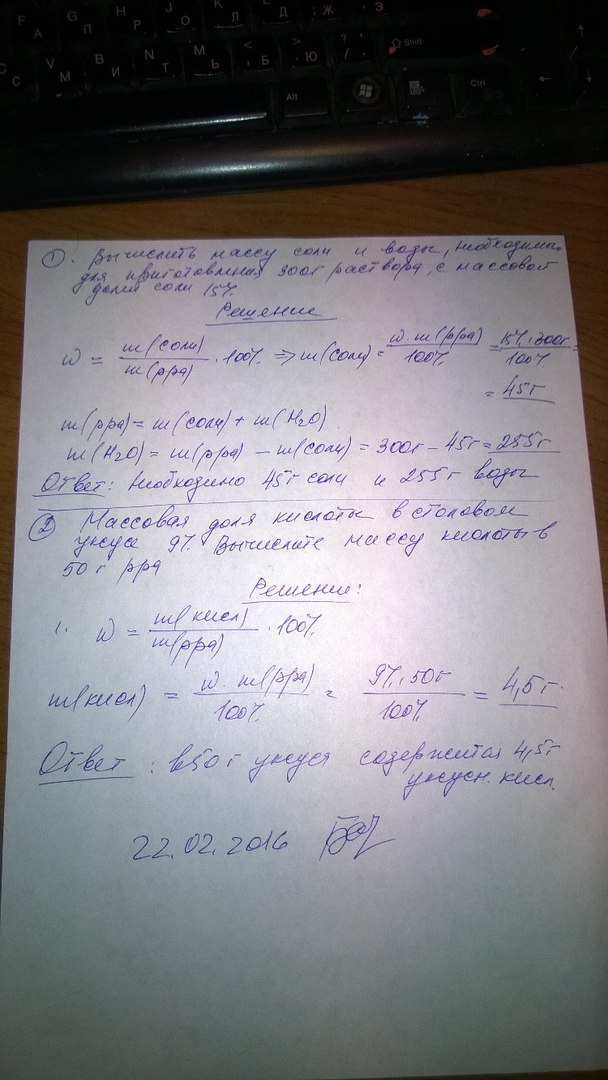 F А
G П
H Р
J О
K Л
L Д
: ; Ж
" ' Э
С
V М
B И
N Т
M Ь
< , Б
> . Ю
? /
Shift
Alt
Ctrl
1. Вычислить массу соли и воды, необходимых
для приготовления 300г раствора, с массовой
долей соли 15%.
Решение
w = m(соли) / m(рра) · 100% ⇒ m(соли) = w · m(рра) / 100% = 15% · 300г / 100% =
= 45г
m(рра) = m(соли) + m(H2O)
m(H2O) = m(рра) - m(соли) = 300г - 45г = 255г
Ответ: Необходимо 45г соли и 255г воды
2 Массовая доля кислоты в столовом
уксусе 9%. Вычислите массу кислоты в
50г рра
Решение:
1. w = m(кисл) / m(рра) · 100%
m(кисл) = w · m(рра) / 100% = 9% · 50г / 100% = 4,5г
Ответ: в 50г уксуса содержится 4,5г
уксусн. кисл.
22.02.2016